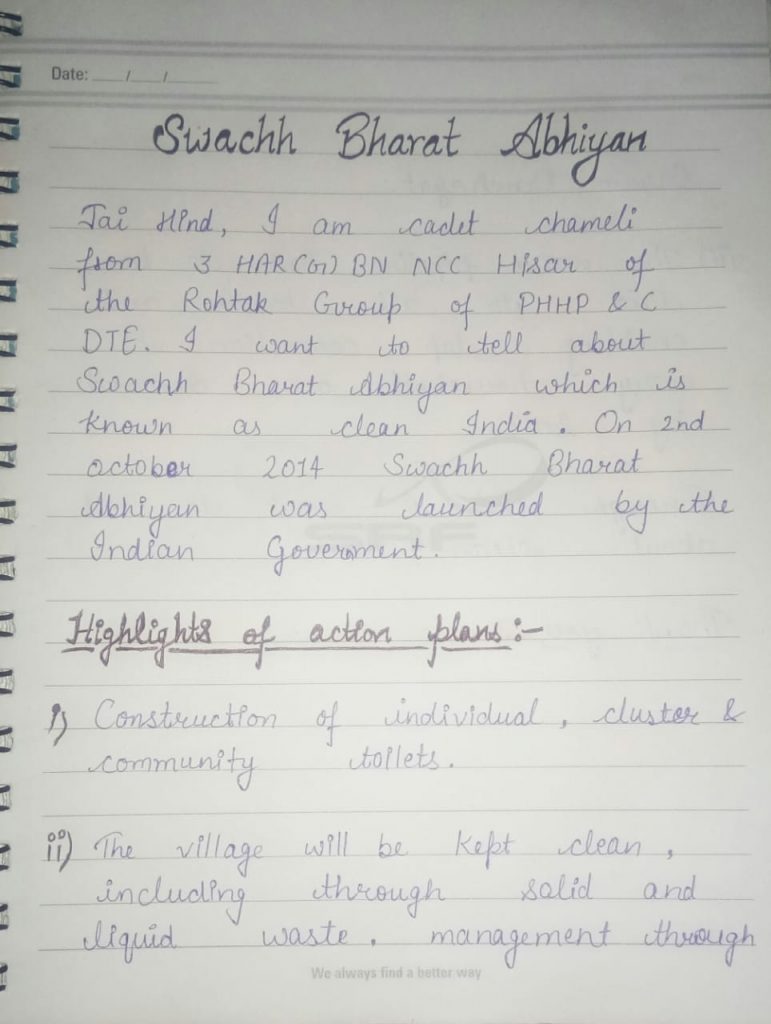 Date: __/__/____
Swachh Bharat Abhiyan
Jai Hind, I am cadet chameli
from 3 HAR (G) BN NCC Hisar of
the Rohtak Group of PHHP & C
DTE. I want to tell about
Swachh Bharat Abhiyan which is
known as clean India. On 2nd
october 2014 Swachh Bharat
Abhiyan was launched by the
Indian Government.
Highlights of action plans :-
i) Construction of individual, cluster &
community toilets.
ii) The village will be kept clean,
including through solid and
liquid waste. management through
We always find a better way